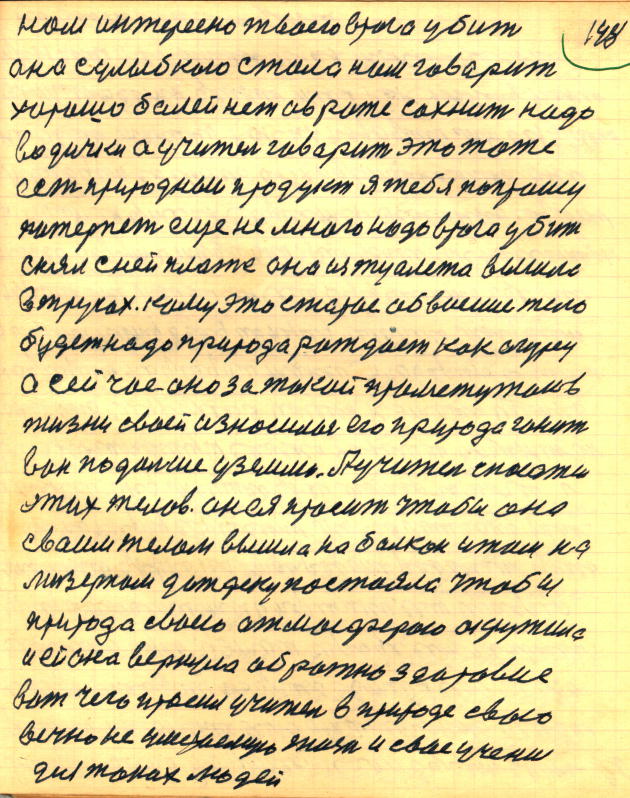 148
нам интересно твоего врага убит
она с улыбкою стала нам говарит
хорошо балей нет а в роте сохнит надо
водички а учител говарит это тоже
ест природнои продукт я тебя попрашу
потерпет еще не много надо врага убит
снял с неи плате она из туалета вышла
в трусах. кому это старое обвисшие тело
будет надо природа рождает как огурец
а сей час оно за такой промежуток в
жизни своей износилос его природа гонит
вон подалше у землю. А учител спосати
этих телов. он ея просит чтобы она
сваим телом вышла на балкон и там на
мизерном дождеку постояла чтобы
природа своею атмосферою окружила
и ей она вернула обратно здоровие
вот чего просил учител в природе свою
вечно не умераемую жизн и свае учени
для таких людей